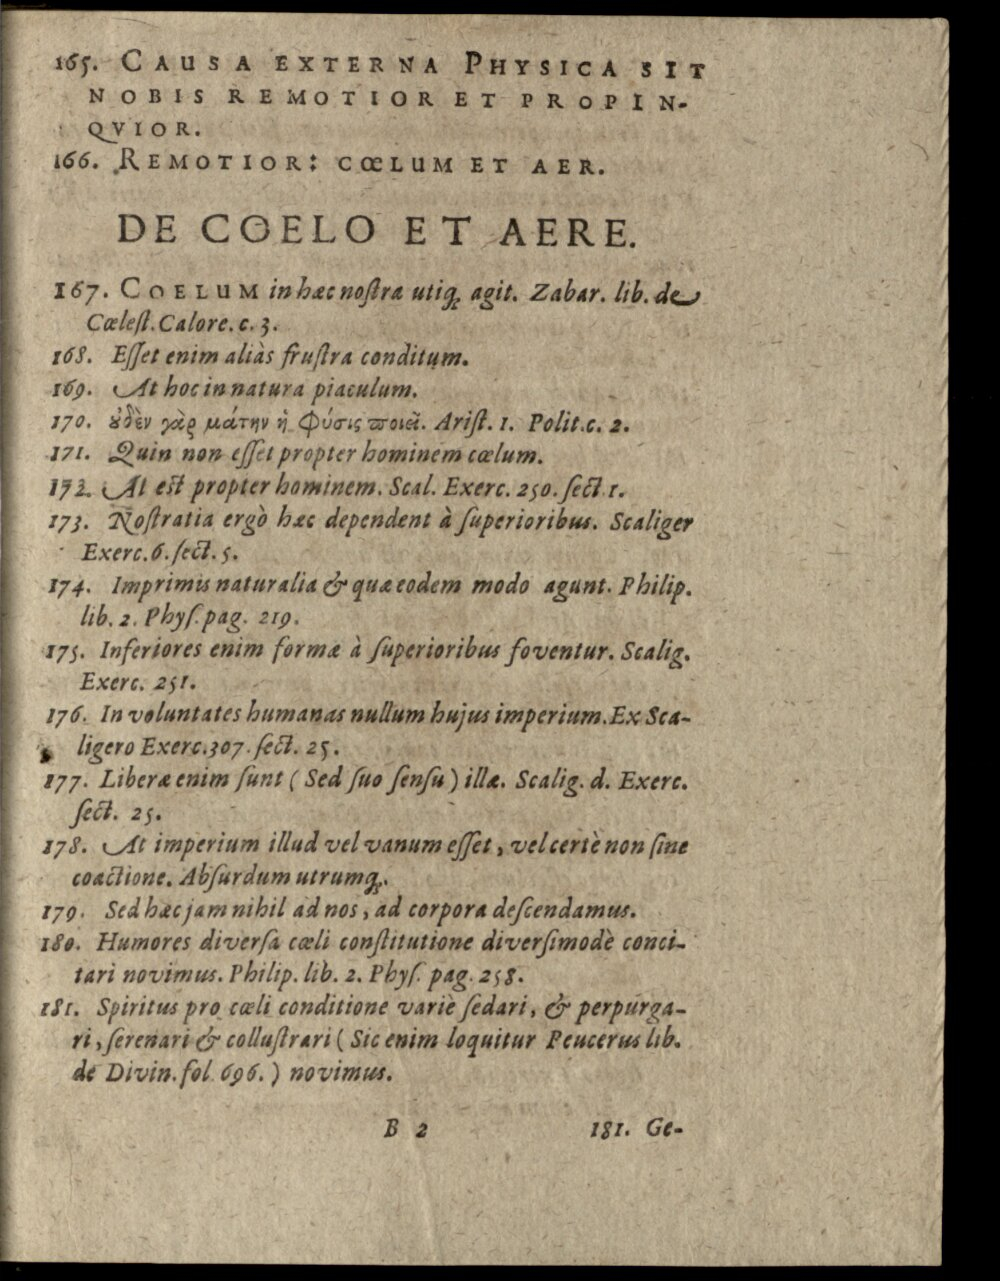 165. CAUSA EXTERNA PHYSICA SIT
NOBIS REMOTIOR ET PROPIN-
QVIOR.
166. REMOTIOR: CŒLUM ET AER.
DE COELO ET AERE.
167. COELUM in hæc nostra utiq; agit. Zabar. lib. de
Cœlest. Calore. c. 3.
168. Esset enim aliàs frustra conditum.
169. At hoc in natura piaculum.
170. ȣ̓δὲν γὰρ μάτην ἡ φύσις ποιεῖ. Arist. 1. Polit. c. 2.
171. Quin non esset propter hominem cœlum.
172. At est propter hominem. Scal. Exerc. 250. sect 1.
173. Nostratia ergò hæc dependent à superioribus. Scaliger
Exerc. 6. sect. 5.
174. Imprimis naturalia & quæ eodem modo agunt. Philip.
lib. 2. Phys. pag. 219.
175. Inferiores enim formæ à superioribus foventur. Scalig.
Exerc. 251.
176. In voluntates humanas nullum hujus imperium. Ex Sca-
ligero Exerc. 307. sect. 25.
177. Liberæ enim sunt ( Sed suo sensu ) illæ. Scalig. d. Exerc.
sect. 25.
178. At imperium illud vel vanum esset, vel certè non sine
coactione. Absurdum utrumq;.
179. Sed hæc jam nihil ad nos, ad corpora descendamus.
180. Humores diversa cœli constitutione diversimodè conci-
tari novimus. Philip. lib. 2. Phys. pag. 258.
181. Spiritus pro cœli conditione variè sedari, & perpurga-
ri, serenari & collustrari ( Sic enim loquitur Peucerus lib.
de Divin. fol. 696. ) novimus.
B 2 181. Ge-